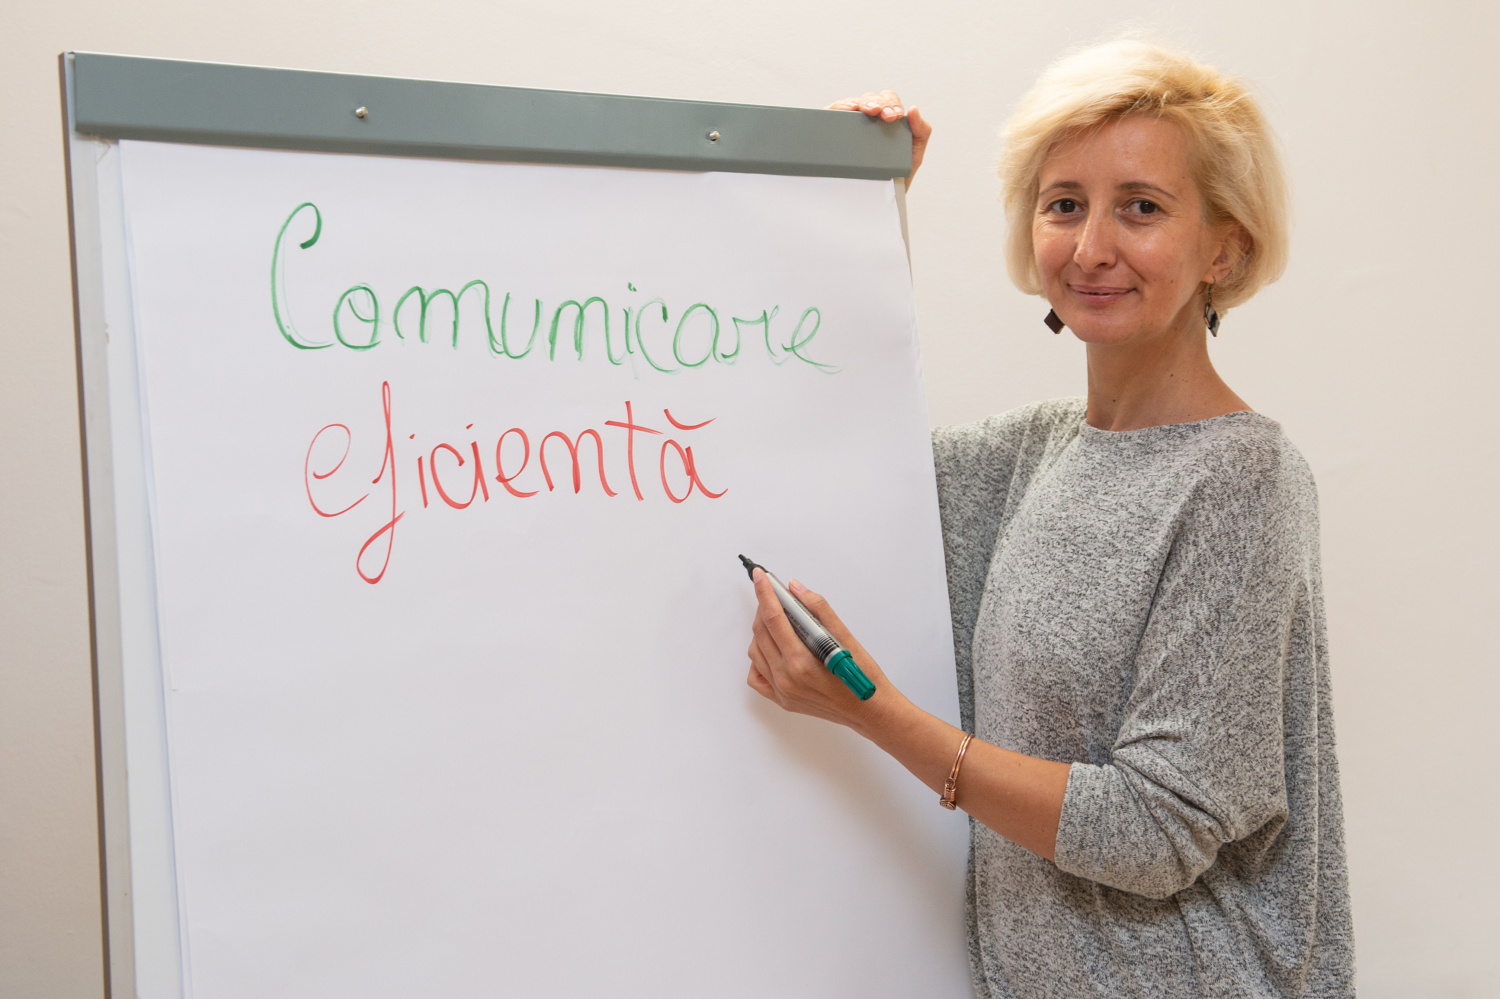 Comunicare
eficientă